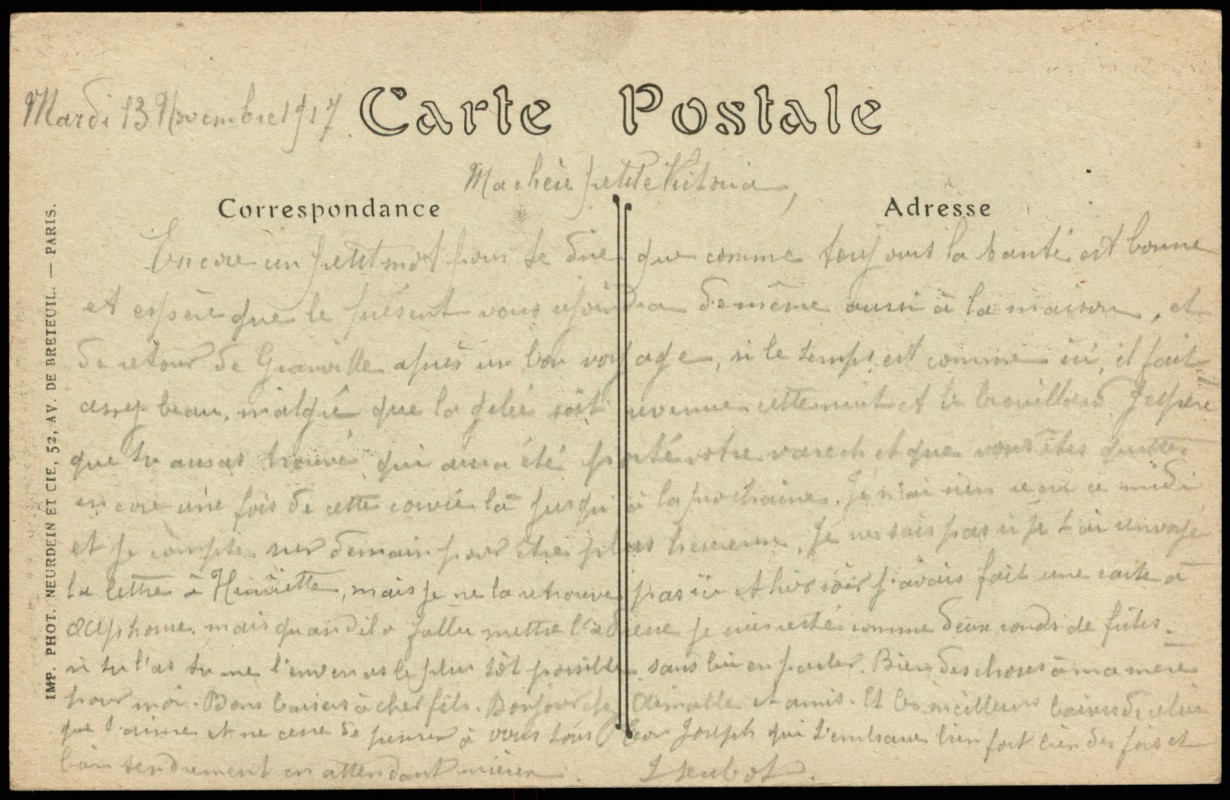 Mardi 13 Novembre 1917
Carte Postale
Ma chère petite Victoria,
Correspondance
Adresse
Encore un petit mot pour te dire que comme toujours la santé est bonne
et espère que le présent vous de même aussi à la maison, et
de retour de Granville après un bon voyage, si le temps est comme ici, il fait
assez beau, malgré que la gelée soit revenue et le brouillard. J'espère
que tu auras trouvé qui aura été porté votre varech et que vous êtes quittes
encore une fois de cette corvée là jusqu'à la prochaine. Je n'ai rien reçu ce midi
et je compte sur demain pour être plus heureux. Je ne sais pas si je t'ai renvoyé
la lettre à Henriette, mais je ne la retrouve pas ici et hier soir j'avais fait une carte à
Alphonse. mais quand il a fallu mettre l'adresse je suis resté comme deux ronds de frites.
si tu l'as tu me l'enverras le plus tôt possible sans lui en parler. Bien des choses à ma mère
pour moi. Bons baisers à cher fils. Bonjour chez Aimable et amis. Et les meilleurs baisers de celui
que t'aime et ne cesse de penser à vous tous Ton Joseph qui t'embrasse bien fort bien des fois et
bien tendrement en attendant mieux.
IMP. PHOT. NEURDEIN ET CIE, 52, AV. DE BRETEUIL. — PARIS.